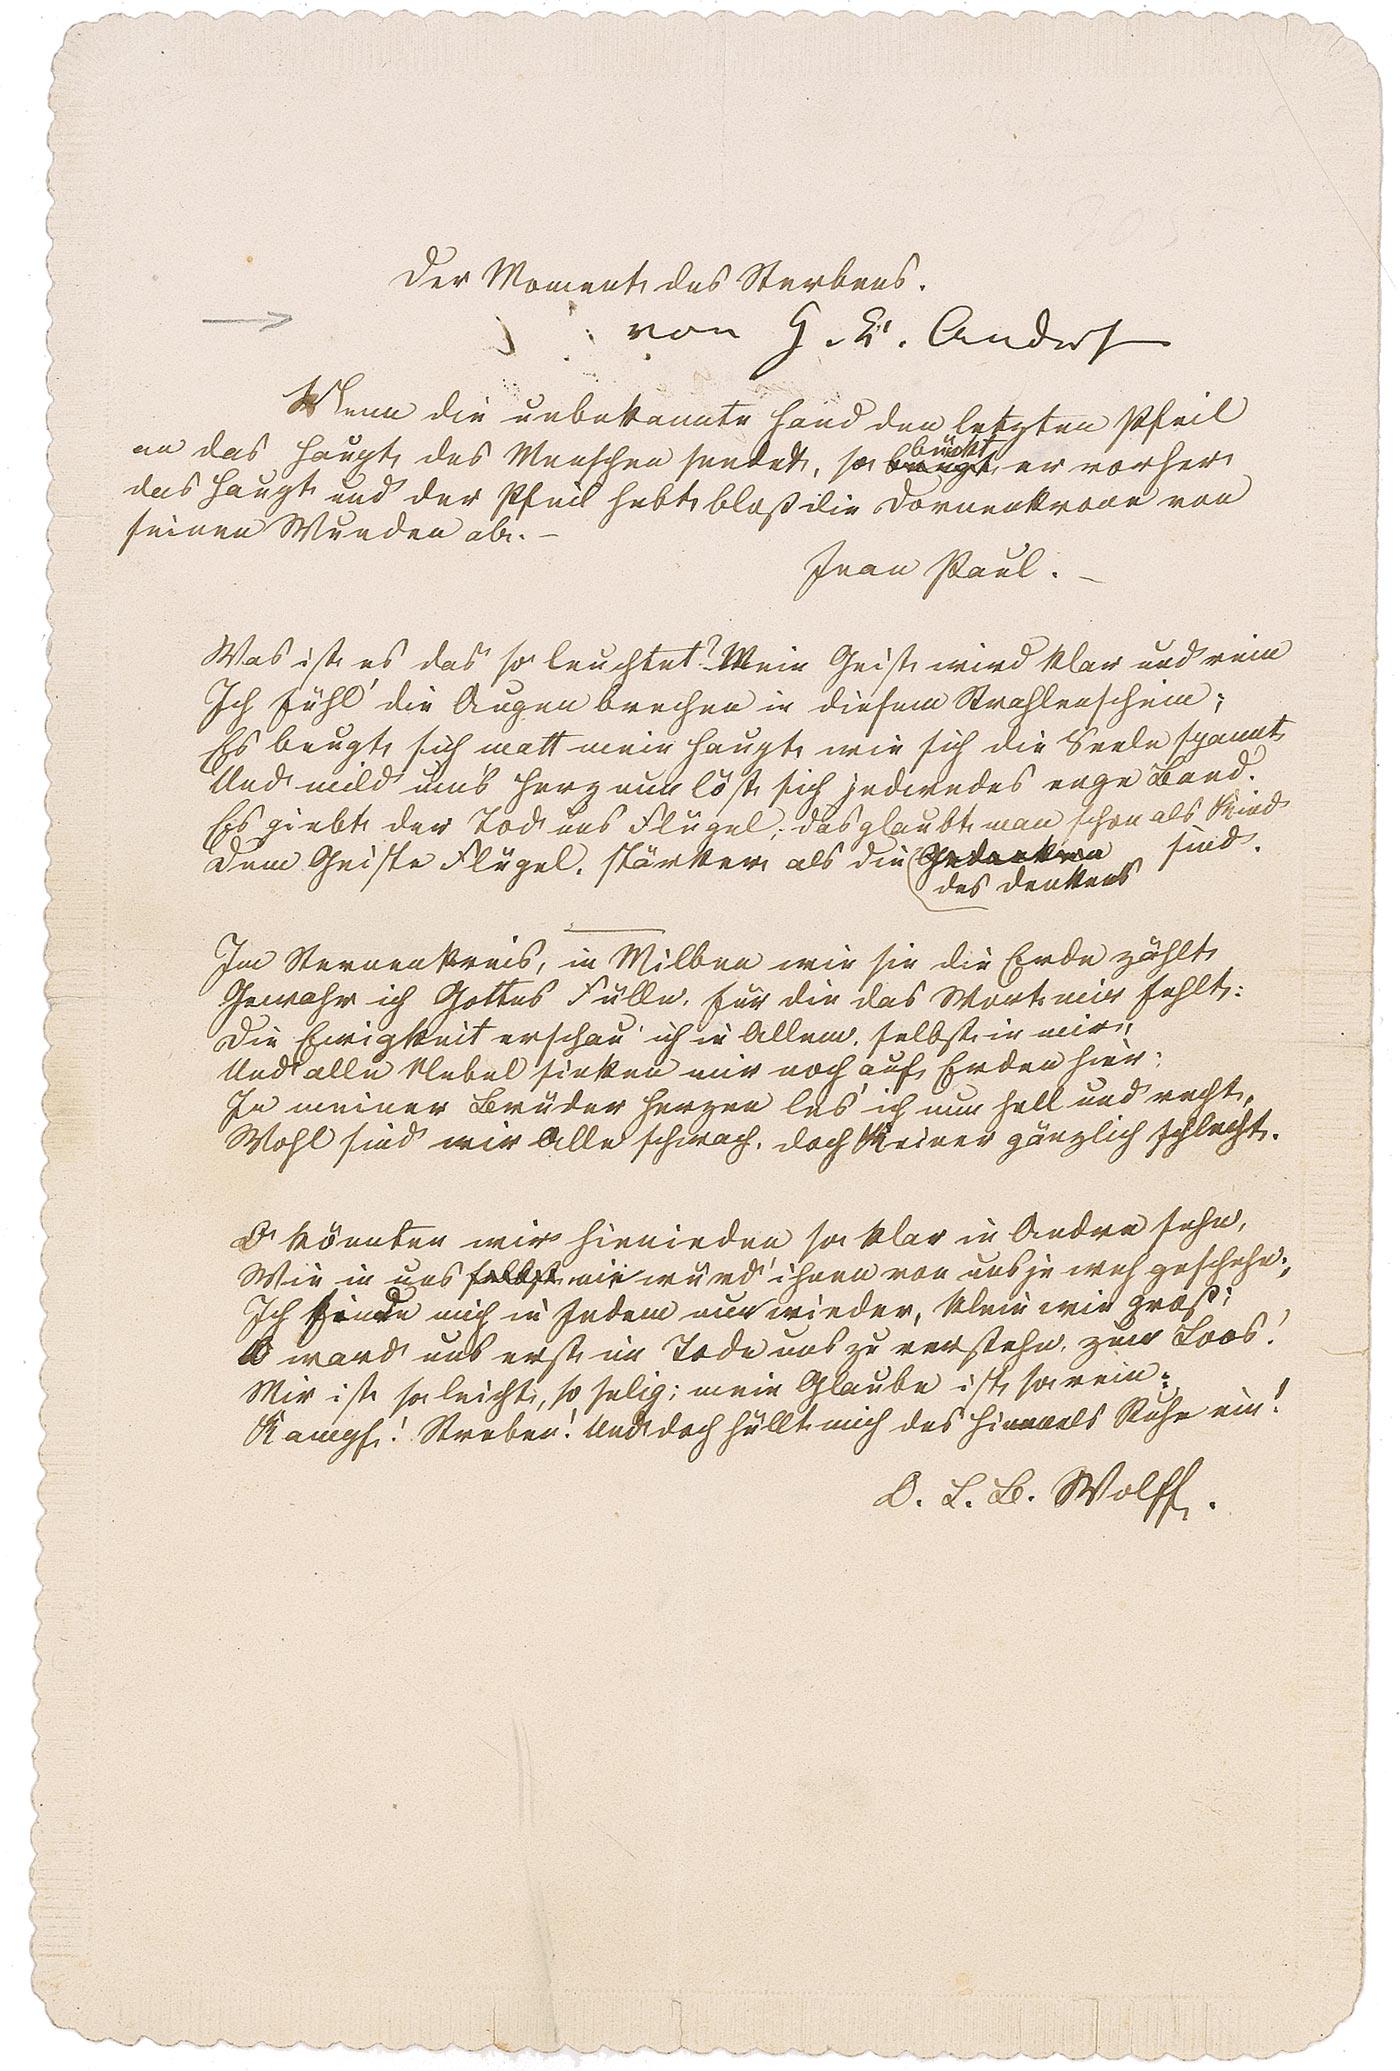 Der Moment des Sterbens.
von H. C. Anders
Wenn die unbekannte Hand den letzten Pfeil
an das Haupt des Menschen sendet, so beugt bückt er vorher
das Haupt und der Pfeil hebt bloß die Dornenkrone von
seinen Wunden ab. –
Jean Paul. –
Was ist es das so leuchtet? Mein Geist wird klar und rein
Ich fühl' die Augen brechen in diesem Strahlenschein;
Es beugt sich matt mein Haupt, wie sich die Seele spannt
Und mild um's Herz nun löst sich jedwedes enge Band.
Es giebt der Tod uns Flügel, das glaubt man schon als Kind
Dem Geiste Flügel, stärker als die Gedanken sind.
des Denkens
Im Sternenkreis, in Milben wie sie die Erde zählt
Gewahr ich Gottes Fülle, für die das Wort mir fehlt:
Die Ewigkeit erschau' ich in Allem, selbst in mir;
Und alle Nebel sinken mir noch auf Erden hier:
In meiner Brüder Herzen les' ich nun hell und recht,
Wohl sind wir Alle schwach, doch Keiner gänzlich schlecht.
O könnten wir hienieden so klar in Andre sehn,
Wie in uns selbst nie würd' ihnen von uns je weh geschehn;
Ich finde mich in Jedem nur wieder, klein wie groß;
O ward uns erst im Tode uns zu verstehn, zum Loos!
Mir ist so leicht, so selig; mein Glaube ist so rein:
Kampf! Streben! Und doch hüllt mich des Himmels Ruhe ein!
O. L. B. Wolff.